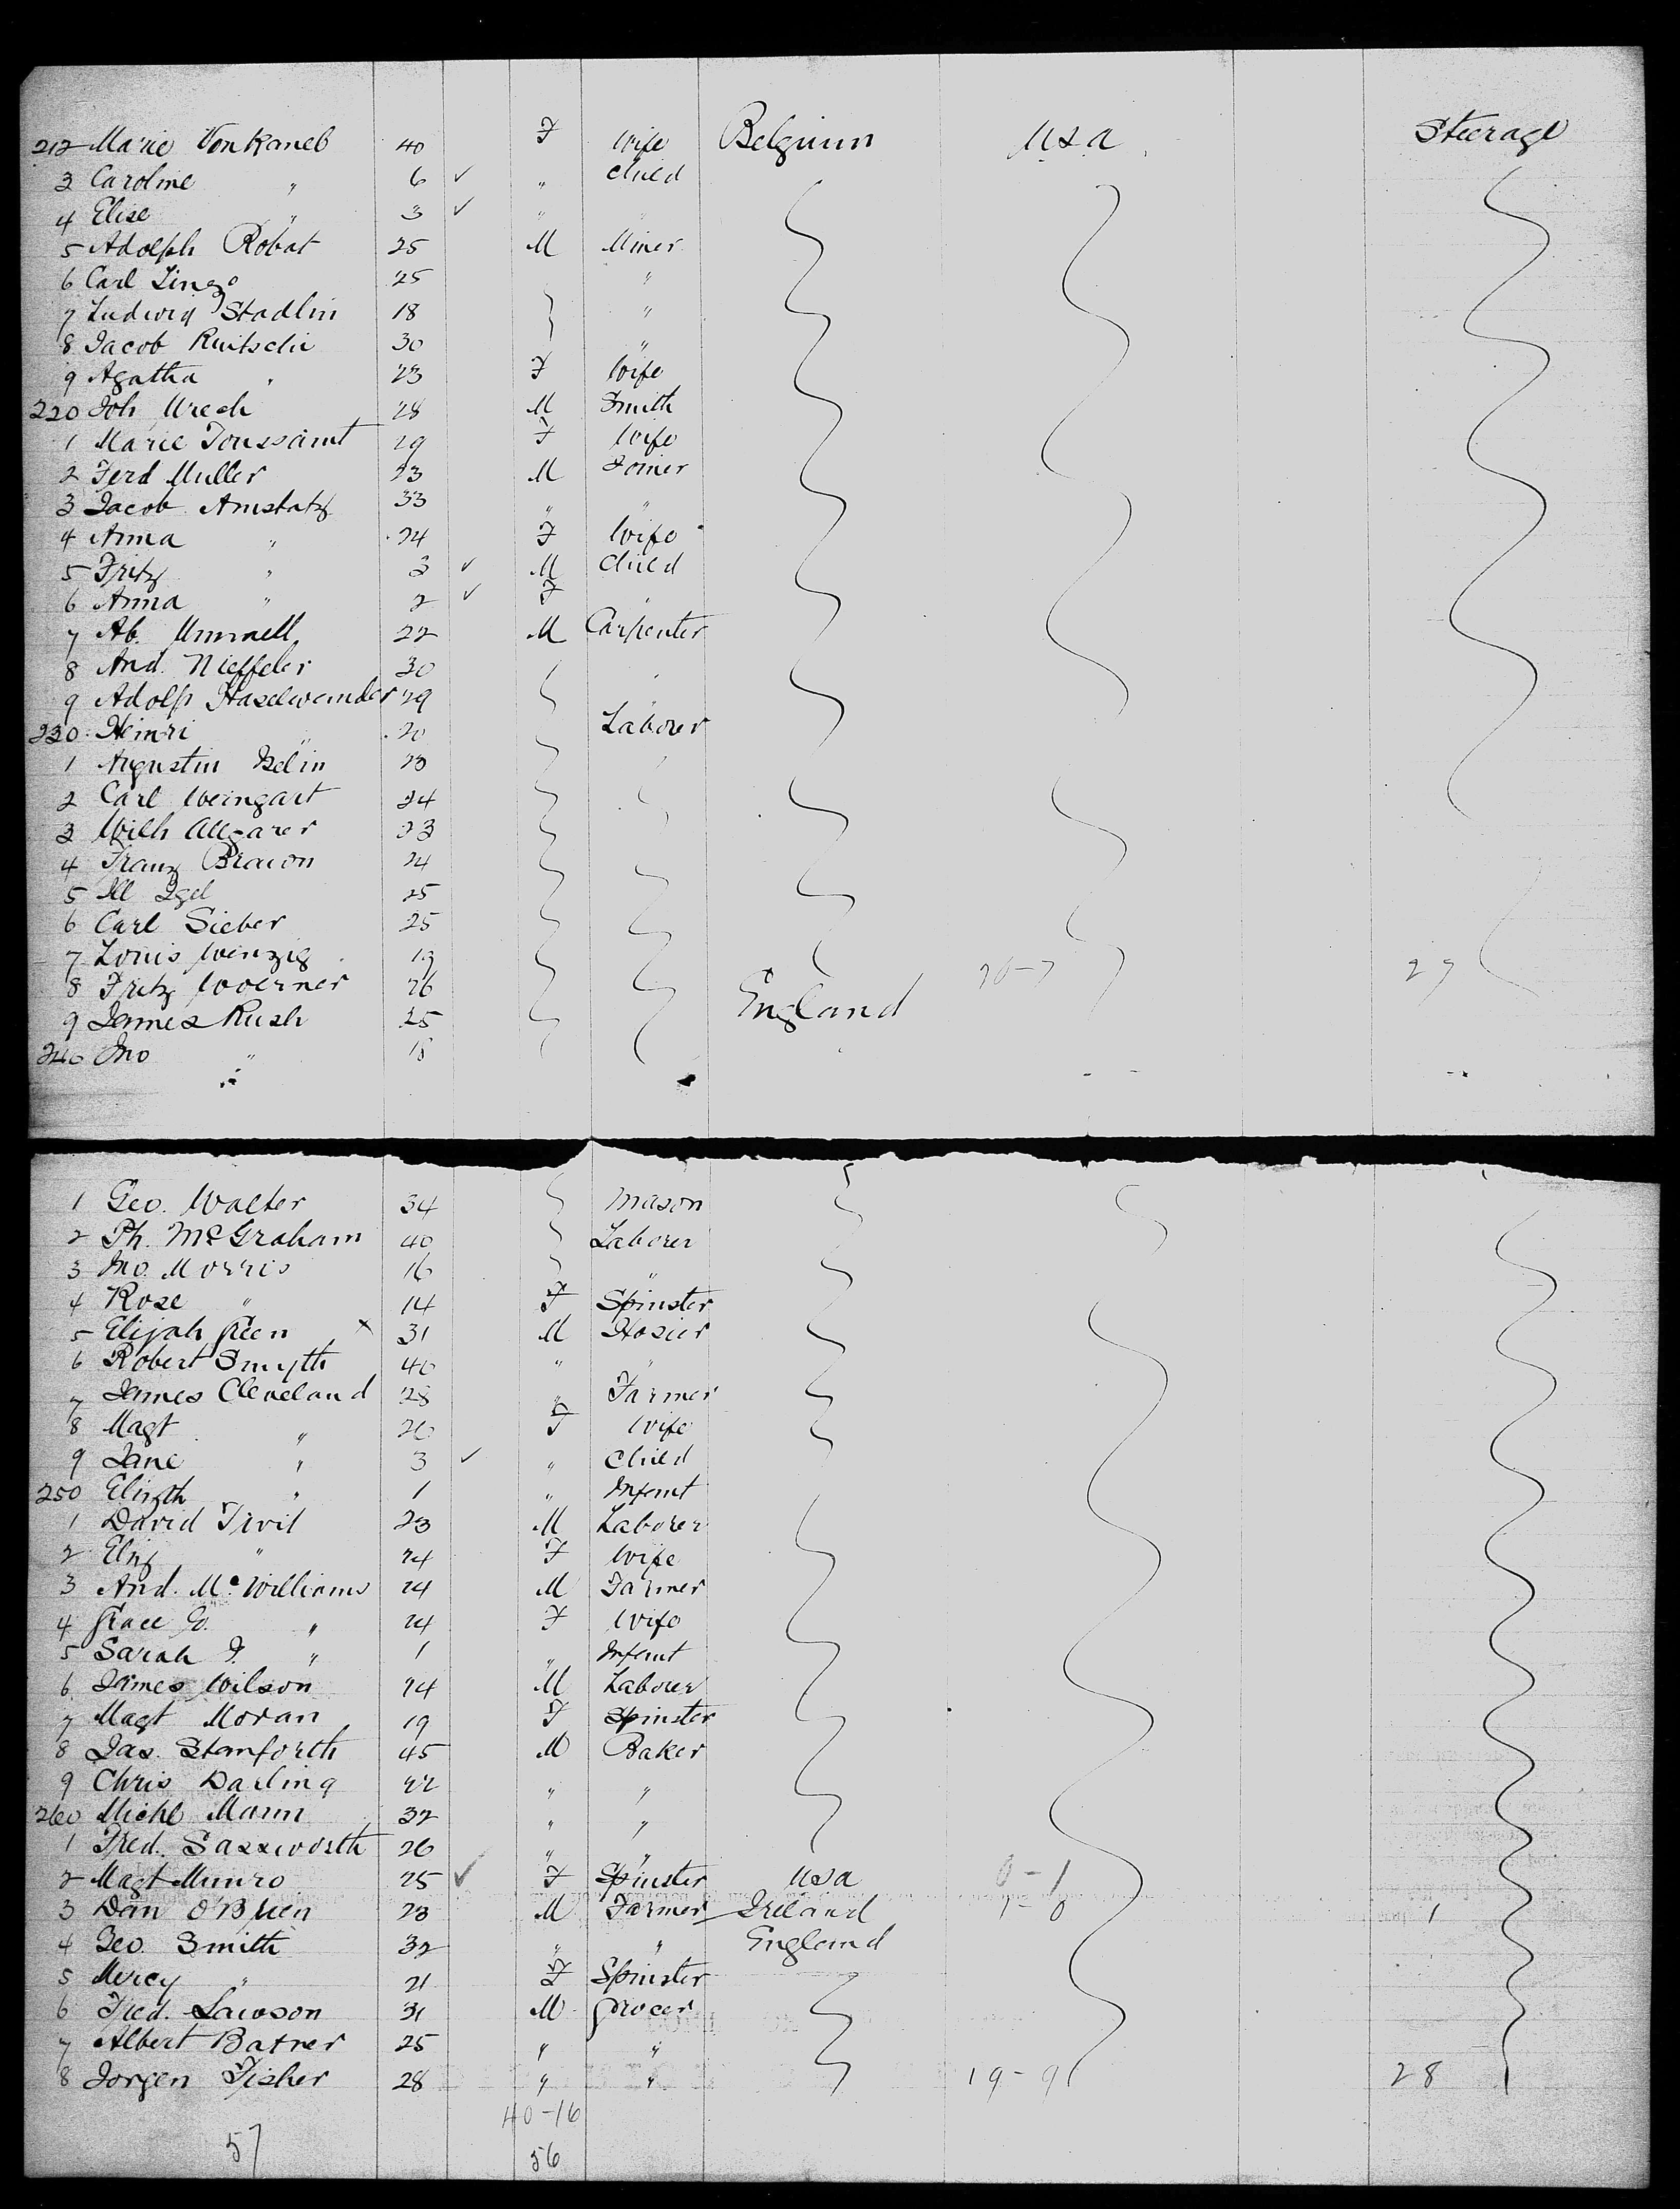 212 Marie Vonkaneb 40 F Wife Belgium U.S.A. Steerage
3 Caroline " 6 ✓ " Child
4 Elise " 3 ✓ " "
5 Adolph Robat 25 M Miner
6 Carl Lingo 25 "
7 Ludwig Stadlin 18 "
8 Jacob Ruitschi 30 "
9 Agatha " 23 F Wife
220 Joh Urech 28 M Smith
1 Marie Toussaint 29 F Wife
2 Ferd Muller 23 M Joiner
3 Jacob Amstatz 33 " "
4 Anna " 24 F Wife
5 Fritz " 3 ✓ M Child
6 Anna " 2 ✓ F "
7 Ab. Ummell 22 M Carpenter
8 And. Nieffeler 30 "
9 Adolf Haselwander 29 "
230 Heinri " 20 Laborer
1 Augustin Iselin 23
2 Carl Weingart 24
3 Wilh Allgarer 23
4 Franz Brawn 24
5 Ill Igel 25
6 Carl Sieber 25
7 Louis Wenzig 19
8 Fritz Woerner 26 20-7 27
9 James Rush 25 England
240 Jno " 18
1 Geo. Walter 34 Mason
2 Ph. McGraham 40 Laborer
3 Jno. Morris 16 "
4 Rose " 14 F Spinster
5 Elijah Keen x 31 M Hosier
6 Robert Smyth 40 " "
7 James Cleveland 28 " Farmer
8 Magt " 26 F Wife
9 Jane " 3 ✓ " Child
250 Elizth " 1 " Infant
1 David Tivil 23 M Laborer
2 Eliz " 24 F Wife
3 And. McWilliams 24 M Farmer
4 Grace G. " 24 F Wife
5 Sarah F. " 1 " Infant
6 James Wilson 24 M Laborer
7 Magt Moran 19 F Spinster
8 Jas. Stanforth 45 M Baker
9 Chris Darling 42 " "
260 Michl Mann 32 " "
1 Fred. Saxxworth 26 " "
2 Magt Munro 25 ✓ F Spinster USA 0-1
3 Dan O'Brien 23 M Farmer Ireland 1-0 1
4 Geo. Smith 32 " " England
5 Mercy " 21 F Spinster
6 Fred. Lawson 31 M Grocer
7 Albert Batner 25 " "
8 Jorgen Fisher 28 " " 19-9 28
40-16
57 56